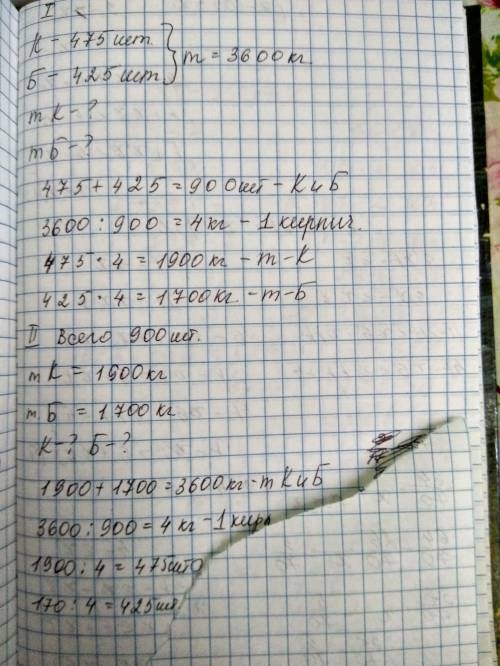 I
К - 475 шт. } m = 3600 кг
Б - 425 шт
m К - ?
m Б - ?
475 + 425 = 900 шт - К и Б
3600 : 900 = 4 кг - 1 кирпич.
475 · 4 = 1900 кг - m - К
425 · 4 = 1700 кг - m - Б
II Всего 900 шт.
m К = 1900 кг
m Б = 1700 кг
К - ? Б - ?
1900 + 1700 = 3600 кг - m К и Б
3600 : 900 = 4 кг - 1 кирп
1900 : 4 = 475 шт
170 : 4 = 425 шт